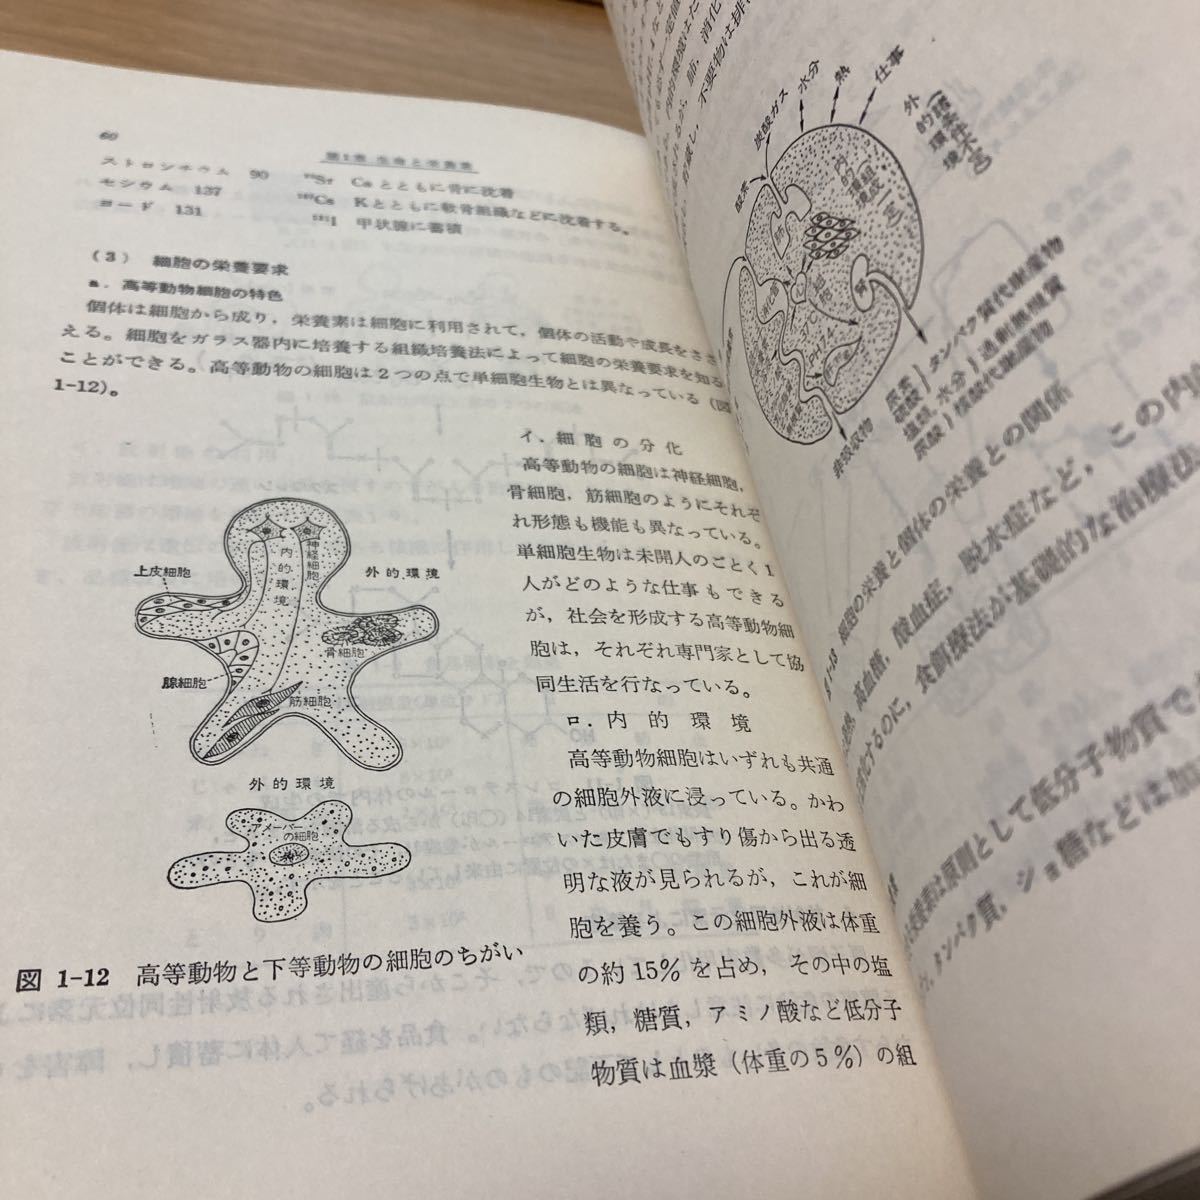 60
第1章 生命と栄養素
ストロンチウム 90 ⁹⁰Sr Caとともに骨に沈着
セシウム 137 ¹³⁷Cs Kとともに軟骨組織などに沈着する。
ヨード 131 ¹³¹I 甲状腺に蓄積
(3) 細胞の栄養要求
a. 高等動物細胞の特色
個体は細胞から成り，栄養素は細胞に利用されて，個体の活動や成長をささ
える。細胞をガラス器内に培養する組織培養法によって細胞の栄養要求を知る
ことができる。高等動物の細胞は2つの点で単細胞生物とは異なっている（図
1-12)。
イ．細胞の分化
高等動物の細胞は神経細胞，
骨細胞，筋細胞のようにそれぞ
れ形態も機能も異なっている。
単細胞生物は未開人のごとく1
人がどのような仕事もできる
が，社会を形成する高等動物細
胞は，それぞれ専門家として協
同生活を行なっている。
ロ．内的環境
高等動物細胞はいずれも共通
の細胞外液に浸っている。かわ
いた皮膚でもすり傷から出る透
明な液が見られるが，これが細
胞を養う。この細胞外液は体重
の約15%を占め，その中の塩
類，糖質，アミノ酸など低分子
物質は血漿（体重の5%）の組
内的環境
神経細胞
外的環境
上皮細胞
骨細胞
腺細胞
筋細胞
外的環境
アメーバー
の細胞
図 1-12 高等動物と下等動物の細胞のちがい
酸素
炭酸ガス
水分
熱
仕事
外的環境
内的環境
肺
細胞
腎
消化管
pH7.4
非吸収物
尿素
硫酸
タンパク質代謝産物
塩類，水分｝過剰無機質
尿酸｝核酸代謝産物
図 1-13 細胞の栄養と個体の栄養との関係
高血糖，酸血症，脱水症など，この内
化するのに，食餌療法が基礎的な治療法
栄養素は原則として低分子物質で
タンパク質，ショ糖などは加